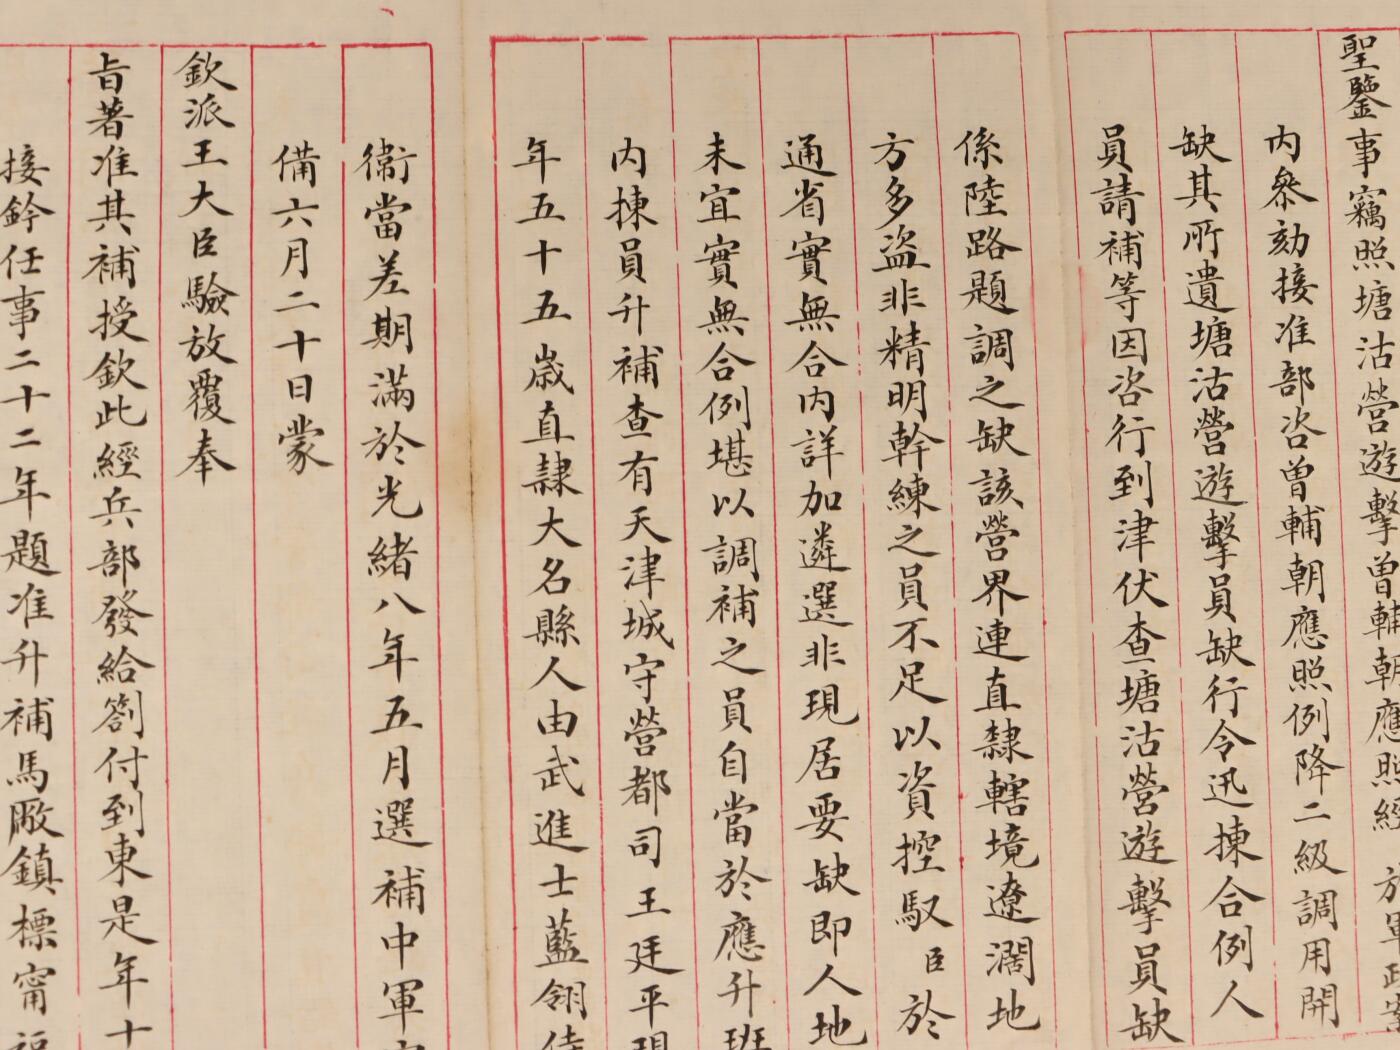 聖鑒事竊照塘沽營遊擊曾輔朝應照經
內叅劾接准部咨曾輔朝應照例降二級調用開
缺其所遺塘沽營遊擊員缺行令迅揀合例人
員請補等因咨行到津伏查塘沽營遊擊員缺
係陸路題調之缺該營界連直隸轄境遼濶地
方多盜非精明幹練之員不足以資控馭臣於
通省實無合內詳加遴選非現居要缺即人地
未宜實無合例堪以調補之員自當於應升班
內揀員升補查有天津城守營都司王廷平現
年五十五歲直隸大名縣人由武進士藍翎侍
衞當差期滿於光緒八年五月選補中軍
備六月二十日蒙
欽派王大臣驗放覆奉
旨著准其補授欽此經兵部發給劄付到東是年十
接鈐任事二十二年題准升補馬廠鎮標甯